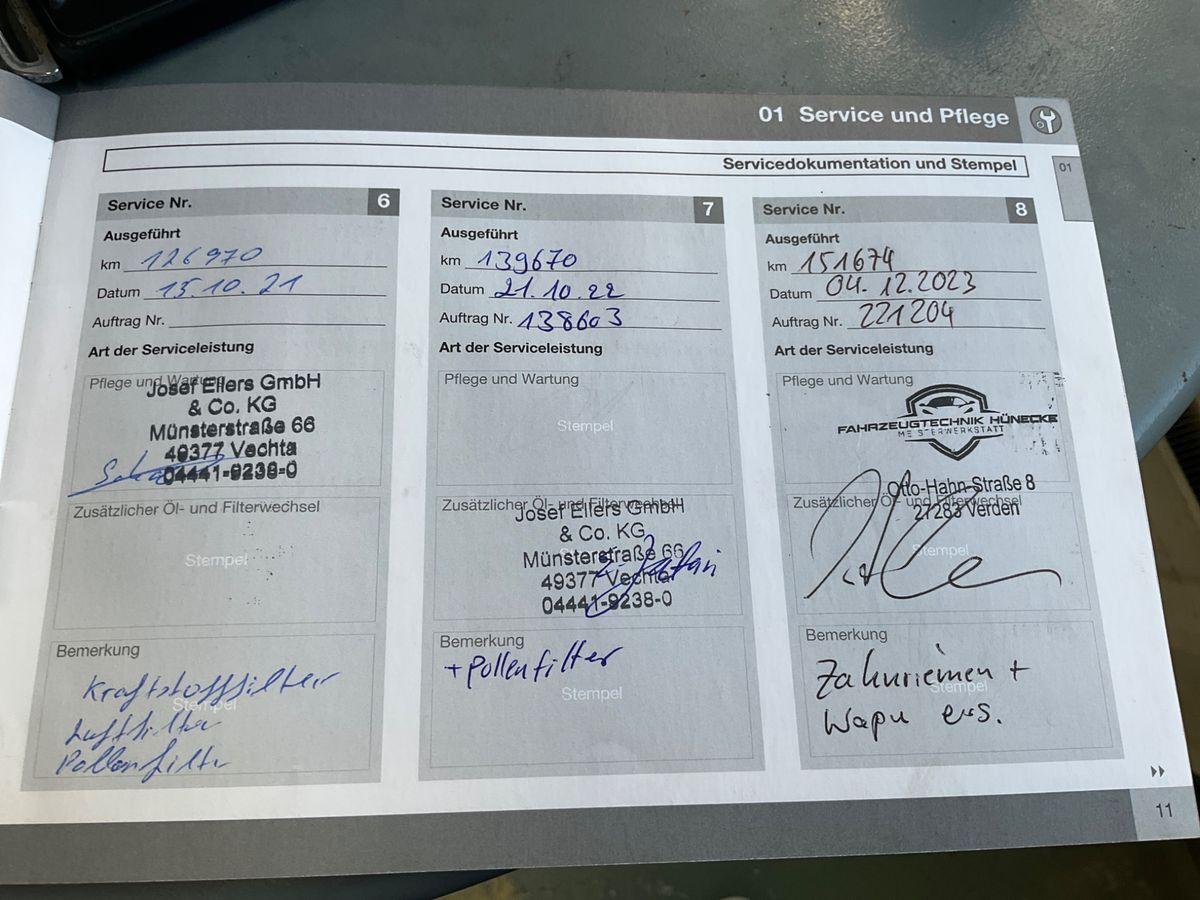 01 Service und Pflege
Servicedokumentation und Stempel
01
Service Nr. 6
Ausgeführt
km 126970
Datum 15.10.21
Auftrag Nr.
Art der Serviceleistung
Pflege und Wartung
Josef Eilers GmbH
& Co. KG
Münsterstraße 66
49377 Vechta
04441-9238-0
Zusätzlicher Öl- und Filterwechsel
Stempel
Bemerkung
Stempel
Kraftstofffilter
Luftfilter
Pollenfilter
Service Nr. 7
Ausgeführt
km 139670
Datum 21.10.22
Auftrag Nr. 138603
Art der Serviceleistung
Pflege und Wartung
Stempel
Zusätzlicher Öl- und Filterwechsel
Josef Eilers GmbH
& Co. KG
Münsterstraße 66
49377 Vechta
04441-9238-0
Bemerkung
+ Pollenfilter
Stempel
Service Nr. 8
Ausgeführt
km 151674
Datum 04.12.2023
Auftrag Nr. 221204
Art der Serviceleistung
Pflege und Wartung
FAHRZEUGTECHNIK HÜNECKE
MEISTERWERKSTATT
Otto-Hahn-Straße 8
Zusätzlicher Öl- und Filterwechsel
27283 Verden
Stempel
Bemerkung
Zahnriemen +
Stempel
Wapu ers.
11